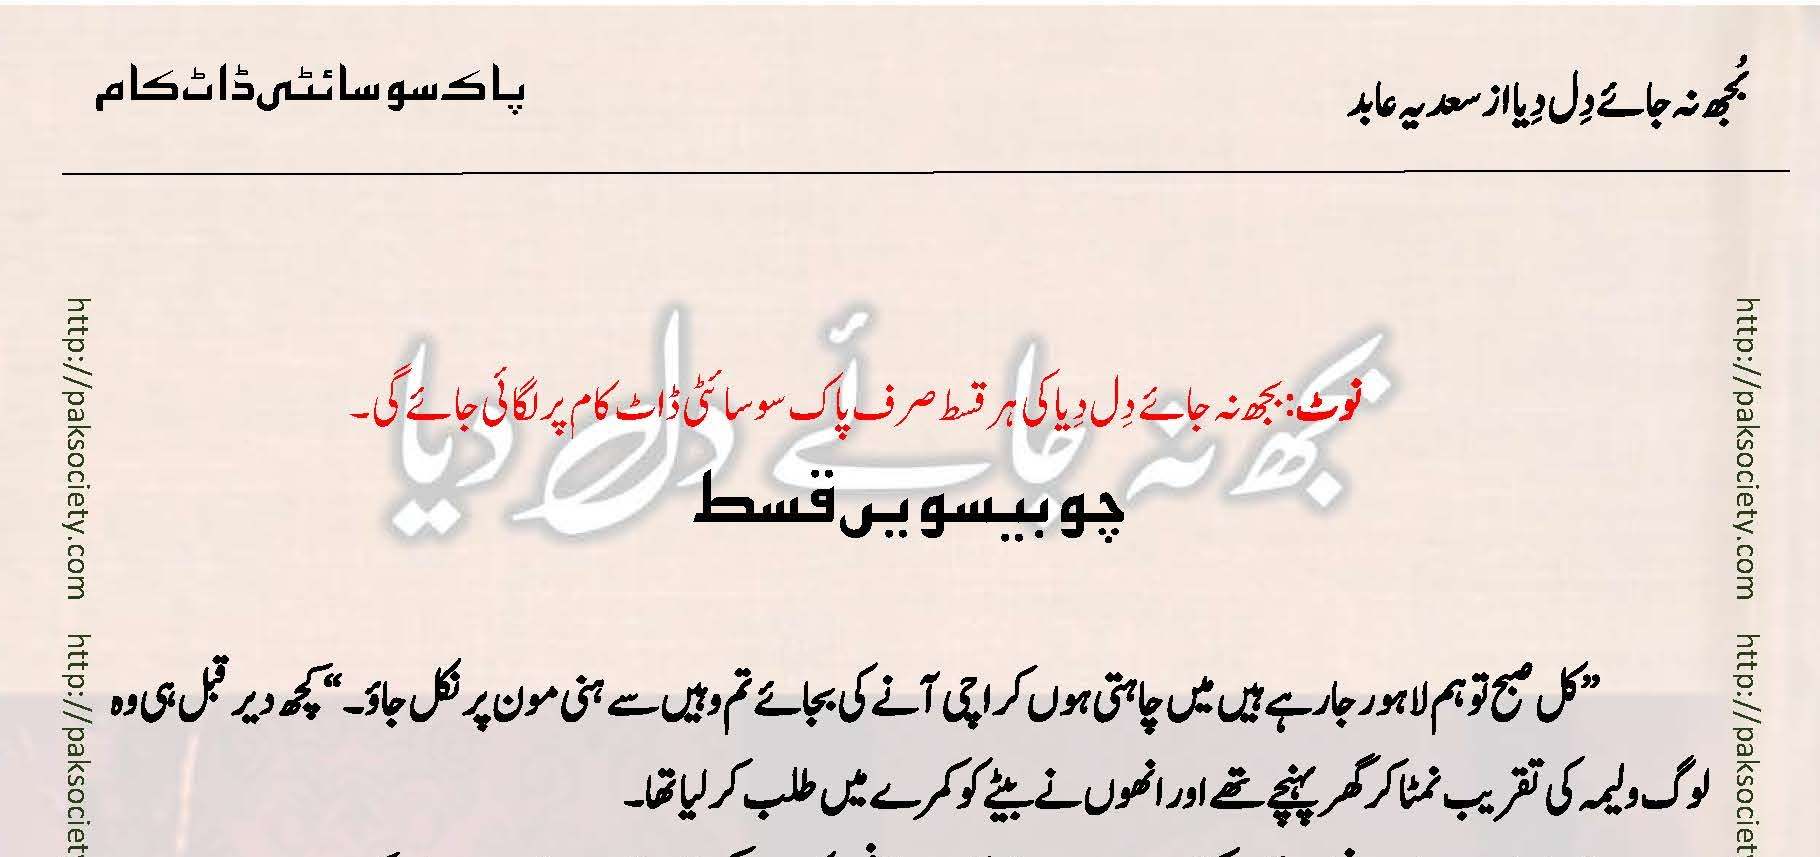 بُجھ نہ جائے دِل دِیا از سعدیہ عابد
پاک سوسائٹی ڈاٹ کام
بجھ نہ جائے دل دیا
نوٹ: بجھ نہ جائے دِل دِیا کی ہر قسط صرف پاک سوسائٹی ڈاٹ کام پر لگائی جائے گی۔
چوبیسویں قسط
”کل صبح تو ہم لاہور جا رہے ہیں میں چاہتی ہوں کراچی آنے کی بجائے تم وہیں سے ہنی مون پر نکل جاؤ۔“ کچھ دیر قبل ہی وہ
لوگ ولیمہ کی تقریب نمٹا کر گھر پہنچے تھے اور انھوں نے بیٹے کو کمرے میں طلب کر لیا تھا۔
http://paksociety.com
http://paksociety.com
http://paksociet
http://paksociet